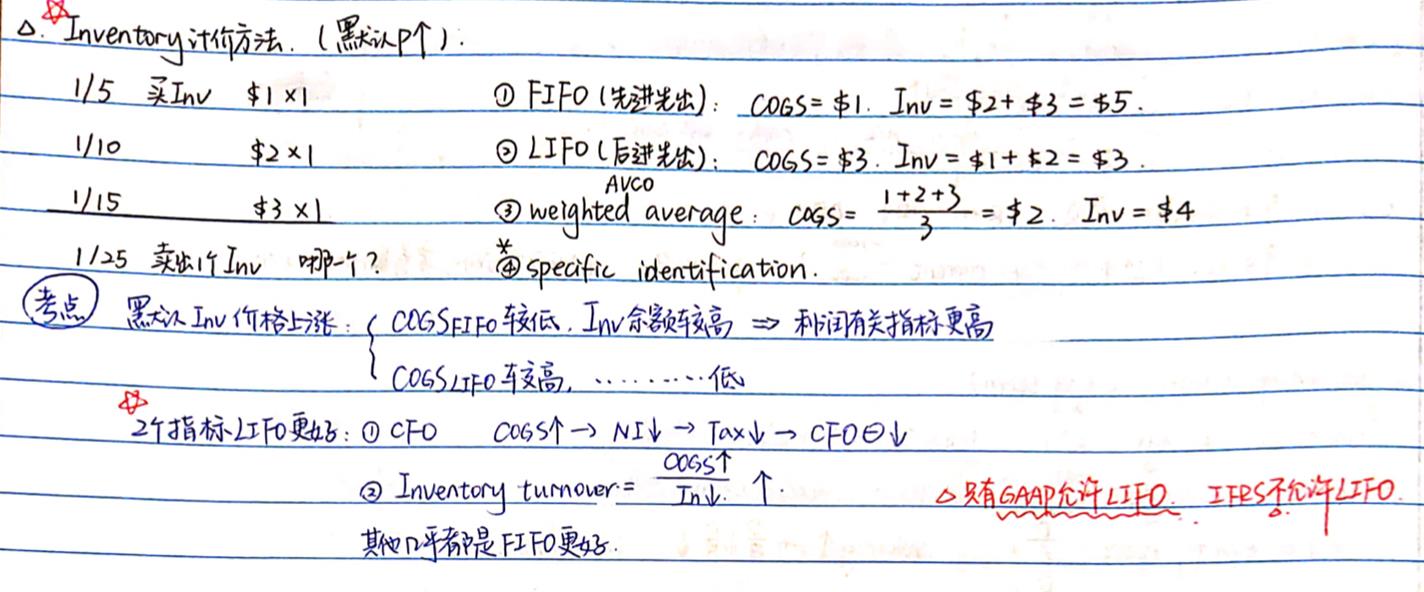 △. ☆ Inventory计价方法. (默认P↑):
1/5 买Inv $1×1 ① FIFO (先进先出): COGS= $1. Inv = $2+ $3 = $5.
1/10 $2×1 ② LIFO (后进先出): COGS= $3. Inv = $1+ $2 = $3.
AVCO
1/15 $3×1 ③ weighted average: COGS= (1+2+3)/3 = $2. Inv = $4
1/25 卖出1个Inv 哪一个? *④ specific identification.
考点 默认Inv价格上涨: { COGS FIFO 较低, Inv余额较高 ⇒ 利润有关指标更高
COGS LIFO 较高, ………… 低
☆ 2个指标LIFO更好: ① CFO COGS↑ → NI↓ → Tax↓ → CFO⊖↓
② Inventory turnover = COGS↑/In↓. ↑. △只有GAAP允许LIFO. IFRS不允许LIFO.
其他几乎都是FIFO更好.